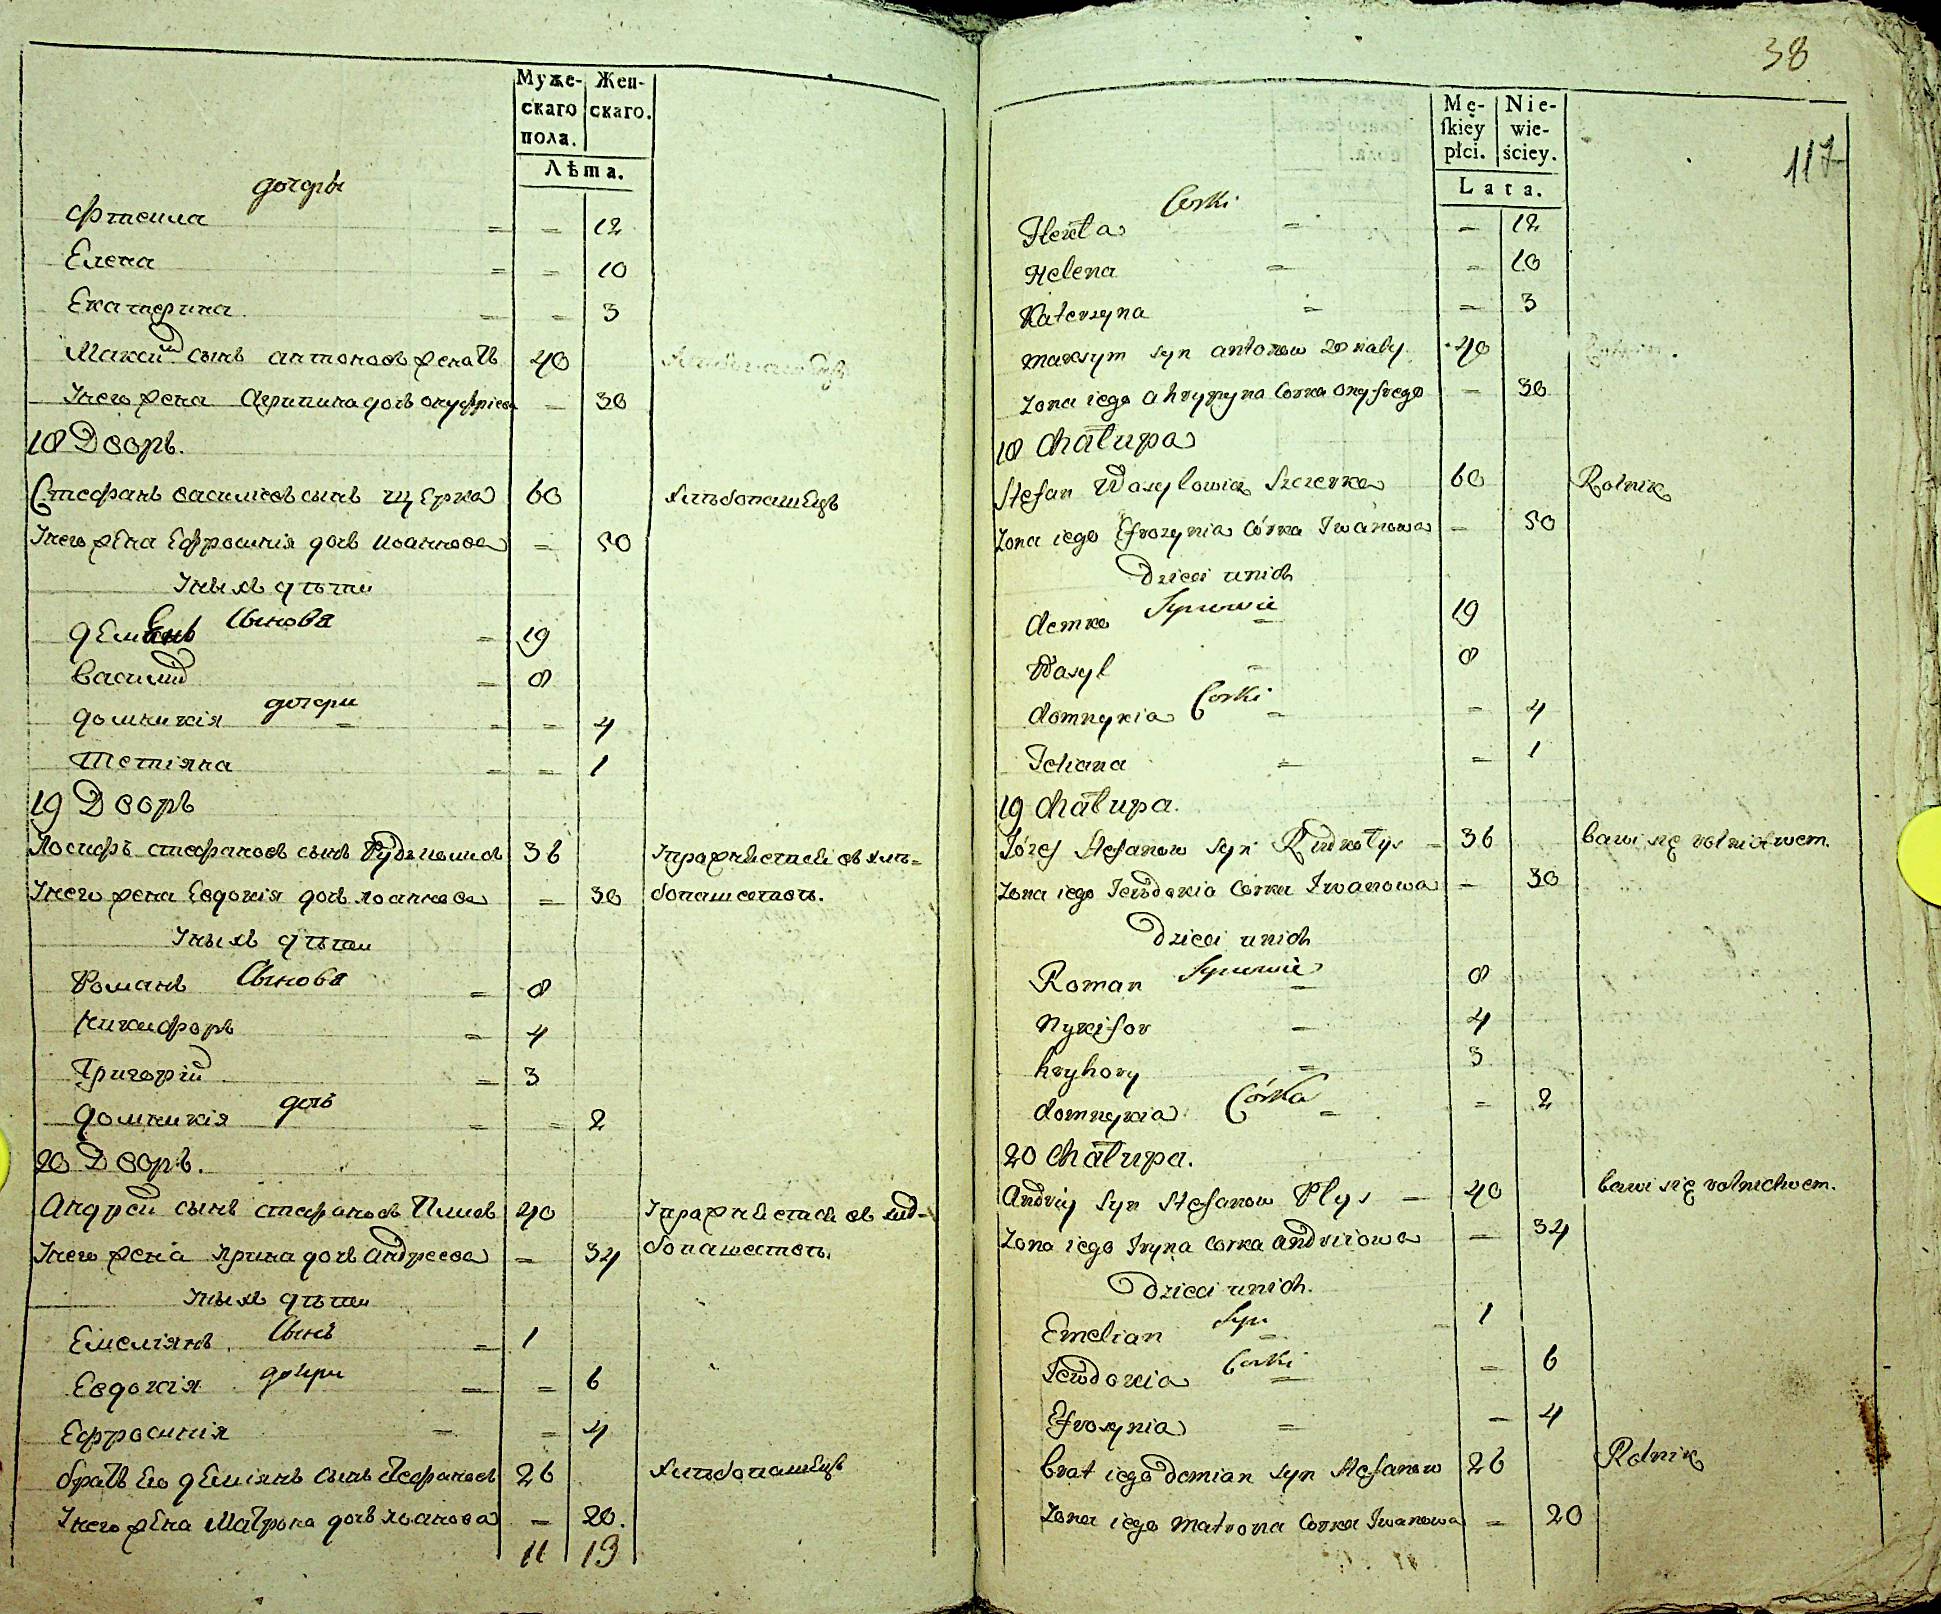 Муже-
скаго
пола.
Жен-
скаго.
Лѣта.
дочери
12
Елена = = 10
Екатерина = = 3
Максим сынъ антоновъ женатъ 40
Унего жена Агрипина дочь онуфріева = 30
18 Дворъ.
Стефанъ василіевъ сынъ щерка 60 хлѣбопашецъ
Унего жена Ефросинія дочь иоаннова = 50
Унихъ дѣти
Сынова
демянъ = 19
Василій = 8
дочери
домникія = = 4
Тетіяна = = 1
19 Дворъ
Иосифъ стефановъ сынъ 36 Упражняется въ хлѣ-
Унего жена Евдокія дочь иоаннова = 30 бопашествѣ.
Унихъ дѣти
Сынова
Романъ = 8
Никифоръ = 4
Григорій = 3
дочь
домникія = = 2
20 Дворъ.
Андрей сынъ стефановъ Плисъ 40 Упражняется въ хлѣ-
Унего жена Ярина дочь Андреева = 34 бопашествѣ.
Унихъ дѣти
Сынъ
Емеліянъ = 1
дочери
Евдокія = = 6
Ефросинія = = 4
братъ Его деміянъ сынъ стефановъ 26 хлѣбопашецъ
Унего жена Матрона дочь иоанова = 20.
11 13
38
117
Mę-
ſkiey
płci.
Nie-
wie-
ściey.
Lata.
Corki
= = 12
Helena = = 10
Katerzyna = = 3
maxsym syn antonow zonaty 40
Zona iego ahrypyna Corka onyfrego = 30
18 chałupa
Stefan Wasylowicz Szczerka 60 Rolnik
Zona iego Efrozynia Córka Iwanowa = 50
Dzieci unich
Synowie
demko = 19
Wasyl = 8
Corki
domnykia = = 4
Tetiana = = 1
19 chałupa.
Józef Stefanow syn = 36 bawi się rolnictwem.
Zona iego Jewdokia Corka Iwanowa = 30
Dzieci unich
Synowie
Roman = 8
Nykifor = 4
hryhory = 3
Córka
domnykia = = 2
20 chałupa.
Andriy syn Stefanow Plys = 40 bawi się rolnictwem.
Zona iego Iryna Corka andriiowa = 34
Dzieci unich.
Syn
Emelian = 1
Corki
Jewdokia = = 6
Efrosynia = = 4
brat iego demian syn Stefanow 26 Rolnik
Zona iego matrona Corka Iwanowa = 20